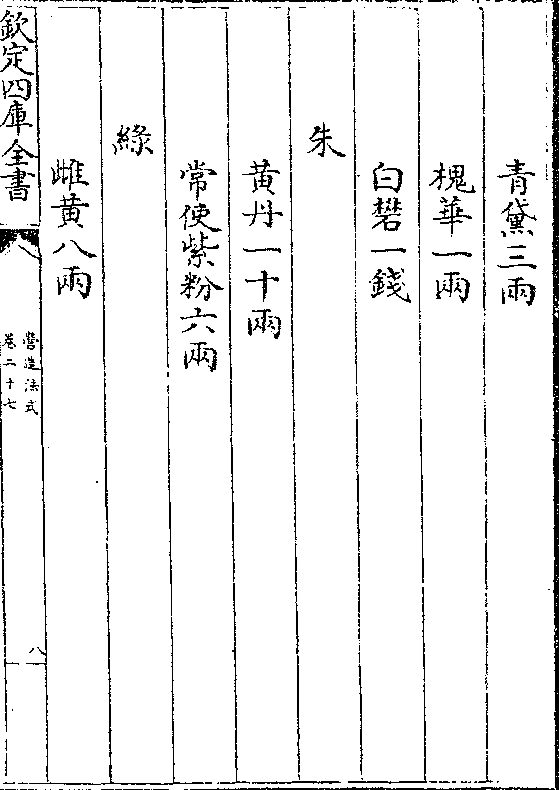 青黛三兩
槐華一兩
白礬一錢
朱
黄丹一十兩
常使紫粉六兩
綠
雌黄八兩
欽定四庫全書
營造法式
卷二十七
八